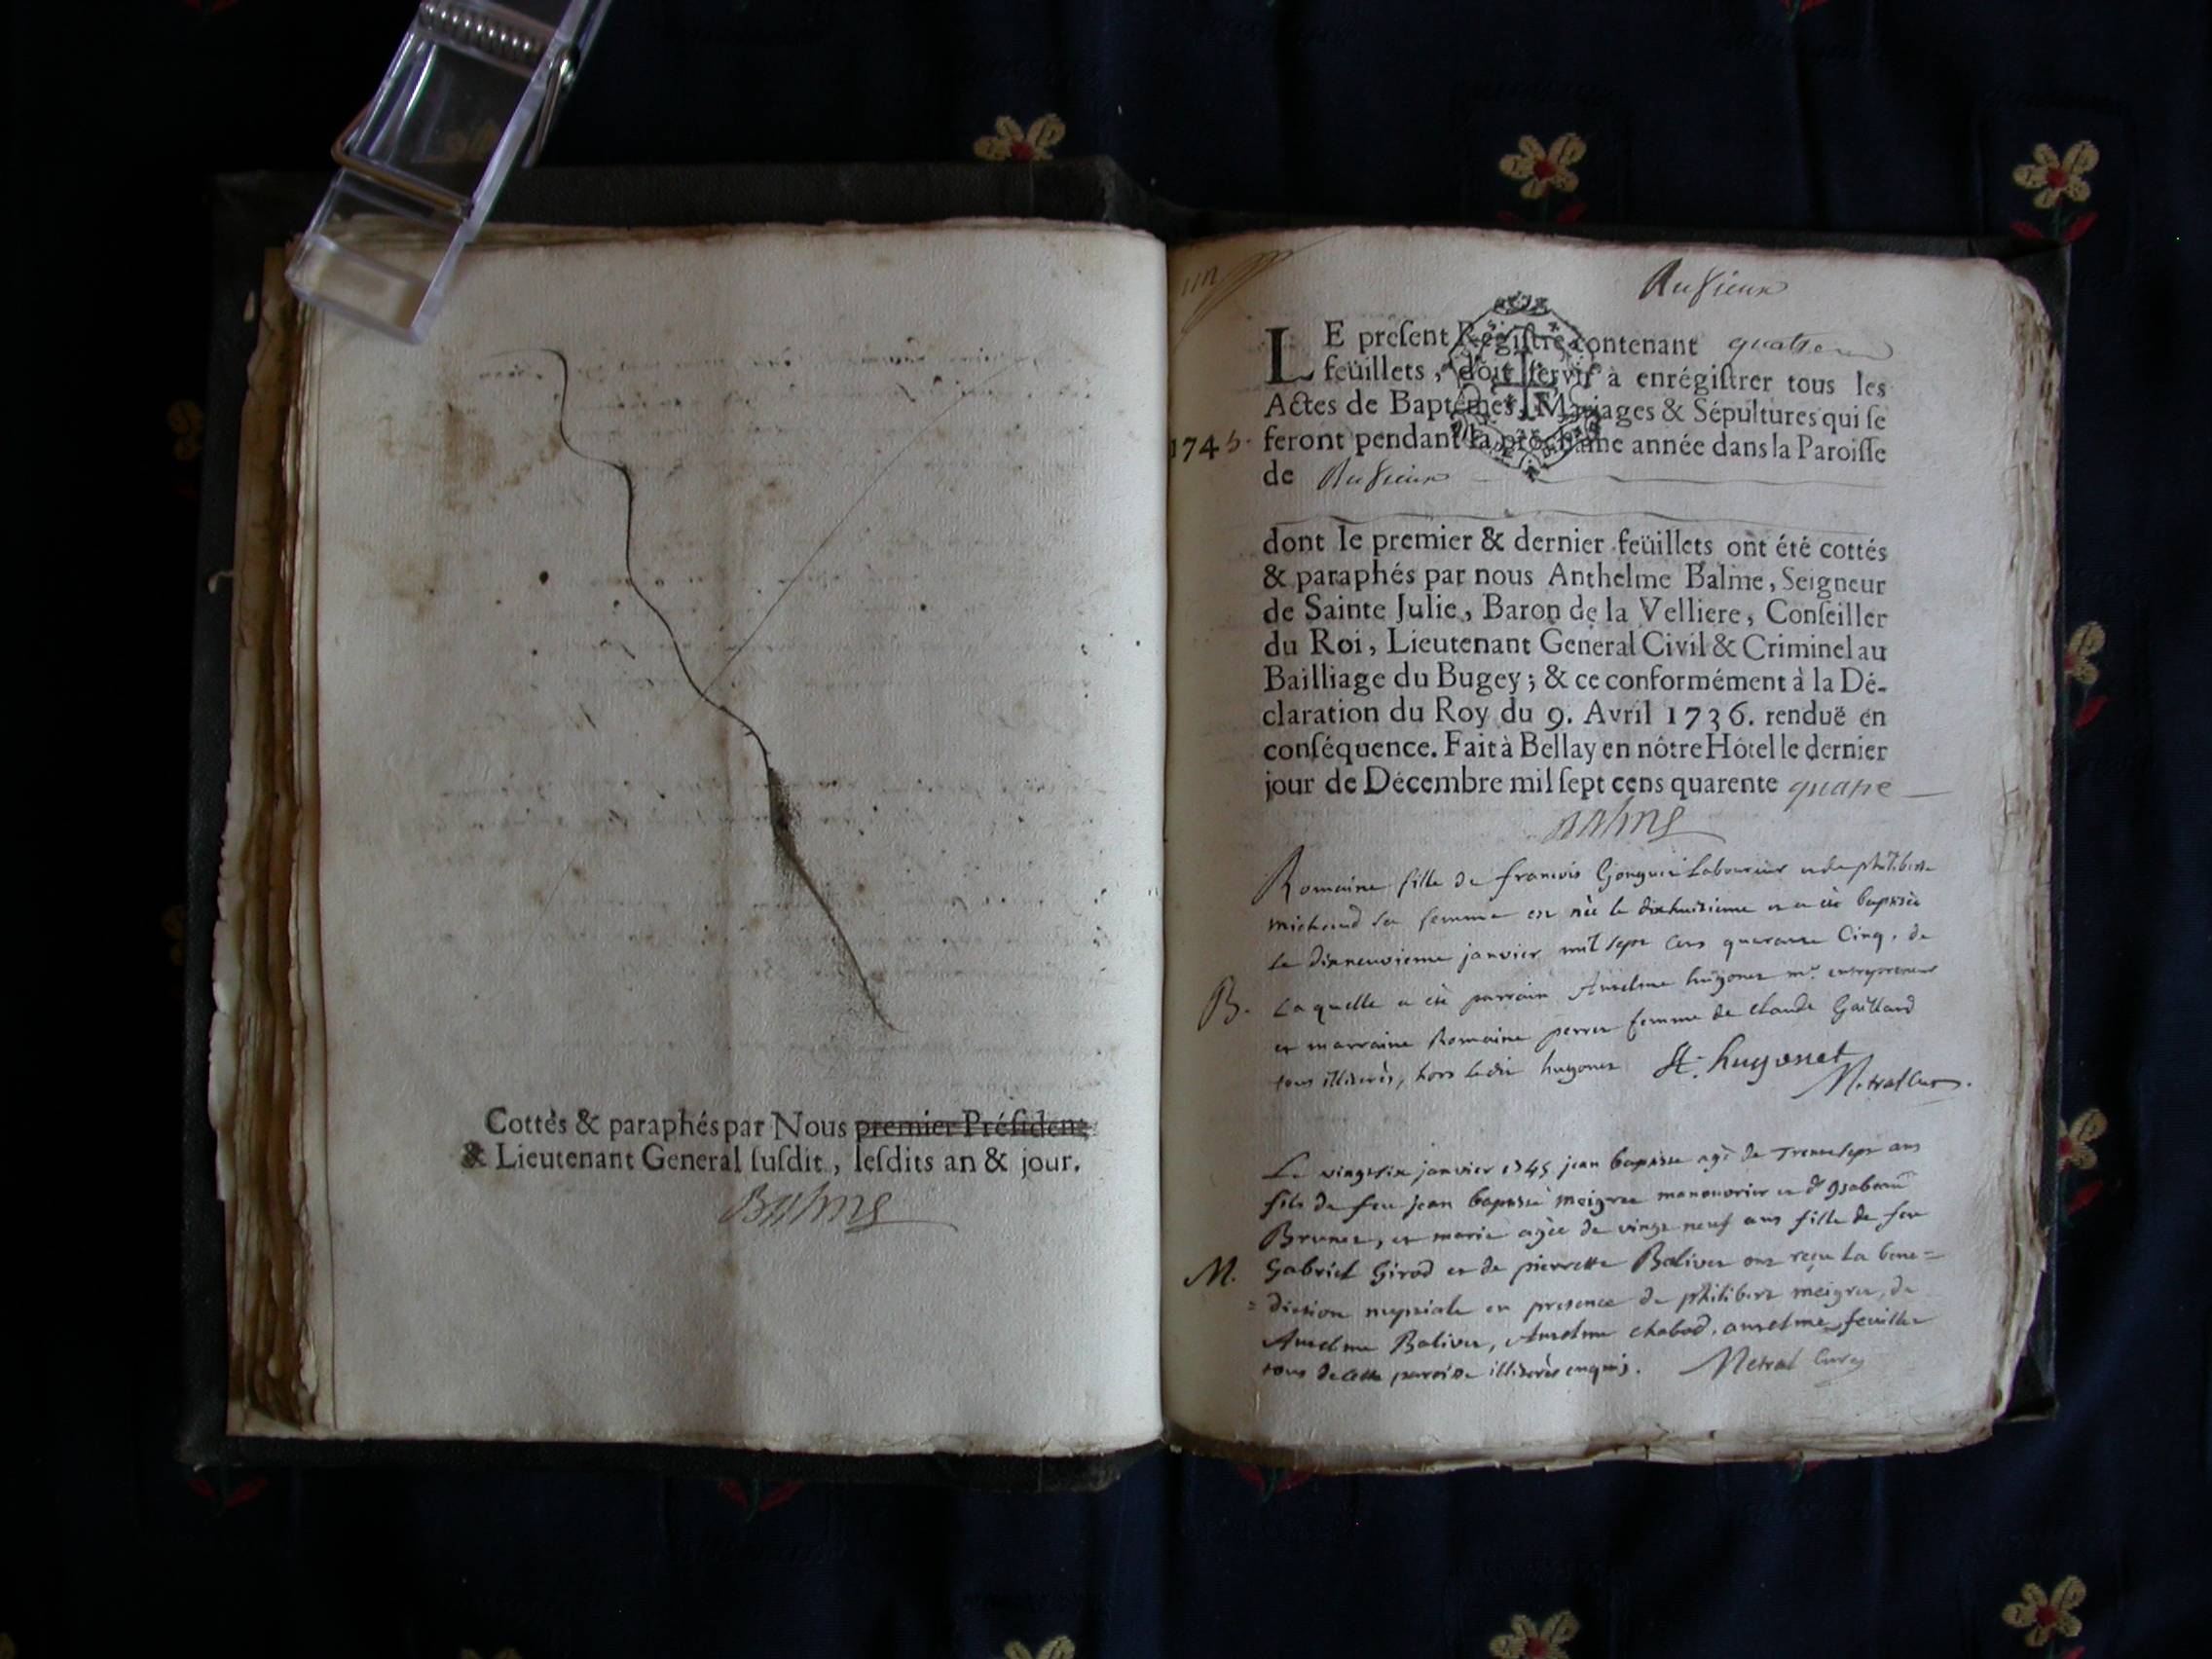 Cottés & paraphés par Nous premier Préſident
& Lieutenant General ſuſdit, leſdits an & jour.
Balme
un
Ruſieux
LE preſent Regiſtre contenant quatorze
feüillets, doit ſervir à enrégiſtrer tous les
Actes de Baptêmes, Mariages & Sépultures qui ſe
1745. feront pendant la prochaine année dans la Paroiſſe
de Ruſieux
dont le premier & dernier feüillets ont été cottés
& paraphés par nous Anthelme Balme, Seigneur
de Sainte Julie, Baron de la Velliere, Conſeiller
du Roi, Lieutenant General Civil & Criminel au
Bailliage du Bugey; & ce conformément à la Dé-
claration du Roy du 9. Avril 1736. renduë en
conſéquence. Fait à Bellay en nôtre Hôtel le dernier
jour de Décembre mil ſept cens quarente quatre
Balme
Romaine fille de francois laboureur et de philiberte
michaud sa femme est née le dixhuitieme et a été baptisée
le dixneuvieme janvier mil sept cens quarante Cinq, de
B. Laquelle a été parrain Anselme hugonet mr. entrepreneur
et marraine Romaine perret femme de claude Gaillard
tous illiterés, hors ledit hugonet A. hugonet
Metral Curé.
Le vingtsix janvier 1745 jean baptiste agé de trentesept ans
fils de feu jean baptiste meigret manouvrier et d'ysabeau
Brunet, et marie agée de vingt neuf ans fille de feu
M. Gabriel Girod et de pierrette Bolivet ont reçu La bene=
=diction nuptiale en presence de philibert meigret, de
Anselme Bolivet, Anselme chabod, anselme feuillet
tous de cette paroisse illiterés enquis. Metral Curé